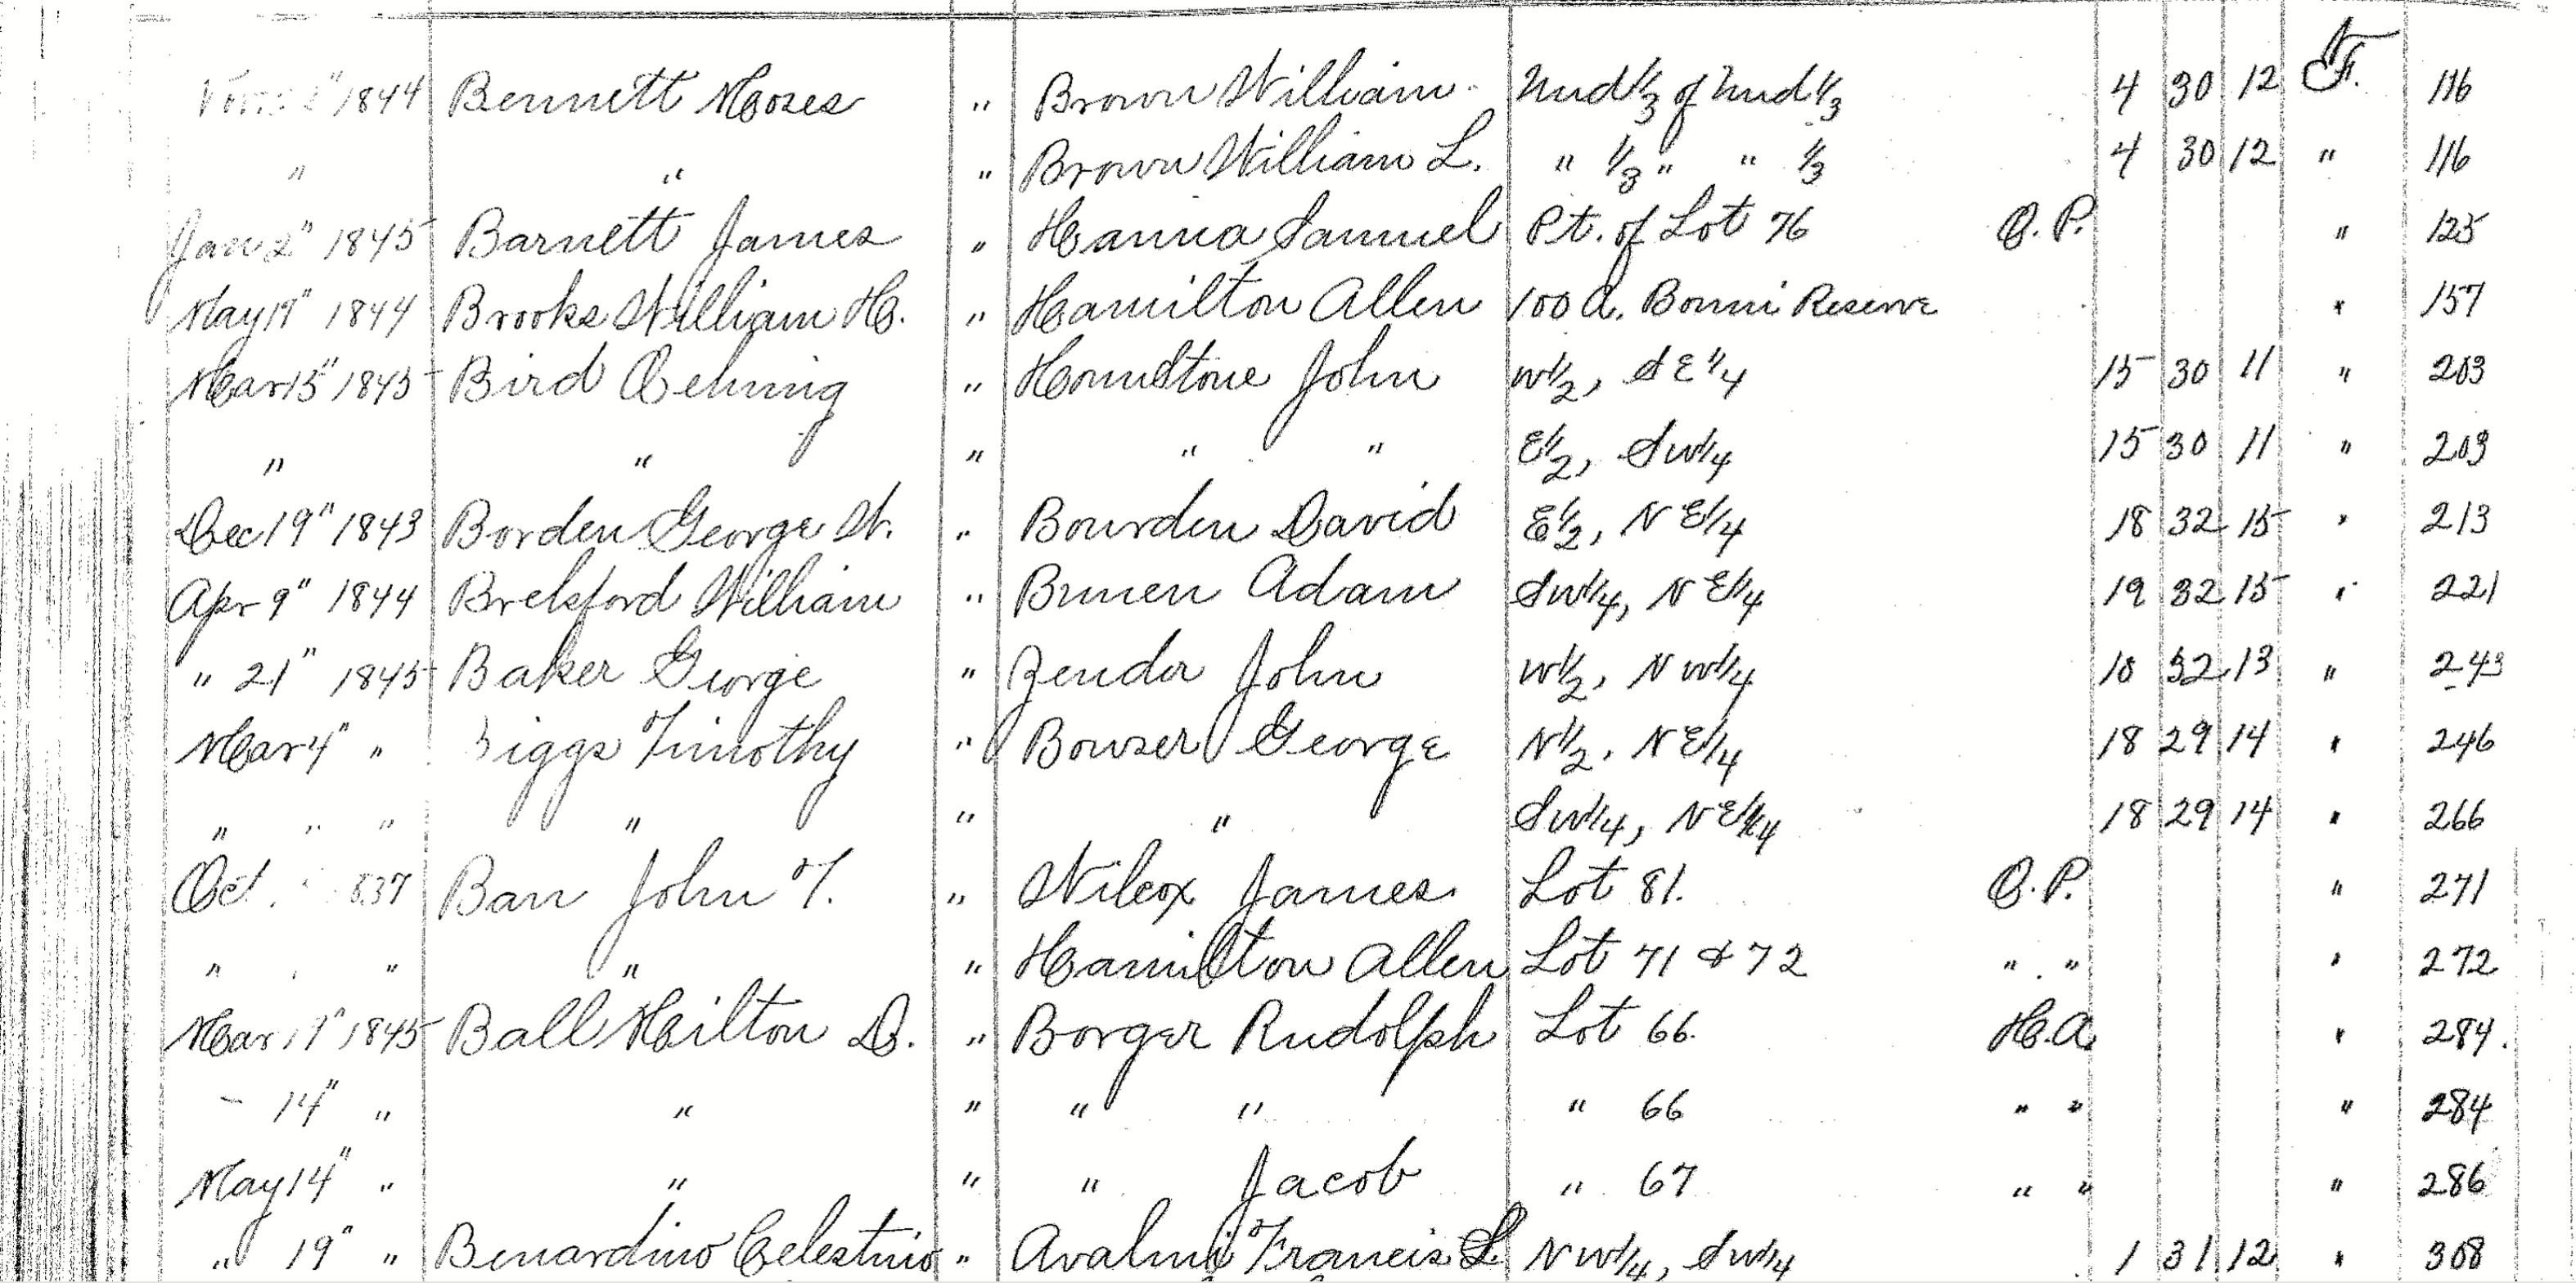 1844 Bennett Moses " Brown William Und 1/3 of Und 1/3 4 30 12 F. 116
" " " Brown William L. " 1/3 " " 1/3 4 30 12 " 116
Jan 2" 1845 Barnett James " Hanna Samuel Pt. of Lot 76 O. P. " 125
May 19" 1844 Brooks William H. " Hamilton Allen 100 A. Bonni Reserve " 157
Mar 15" 1845 Bird Ochmig " Houndstone John W 1/2, S E 1/4 15 30 11 " 203
" " " " " E 1/2, S W 1/4 15 30 11 " 203
Dec 19" 1843 Borden George W. " Bourden David E 1/2, N E 1/4 18 32 15 " 213
Apr 9" 1844 Brelsford William " Bunen Adam S W 1/4, N E 1/4 19 32 15 " 221
" 21" 1845 Baker George " Zender John W 1/2, N W 1/4 10 32 13 " 243
Mar 4" " iggs Timothy " Bowser George N 1/2, N E 1/4 18 29 14 " 246
" " " " " " S W 1/4, N E 1/4 18 29 14 " 266
Oct. 837 Barr John T. " Wilcox James Lot 81. O. P. " 271
" " " " Hamilton Allen Lot 71 & 72 " " " 272
Mar 17" 1845 Ball Milton D. " Borger Rudolph Lot 66. H. A. " 284.
" 14" " " " " " " 66 " " " 284
May 14" " " " " Jacob " 67 " " " 286
" 19" " Benardino Celestino " Avalini Francis L. N W 1/4, S W 1/4 1 31 12 " 308